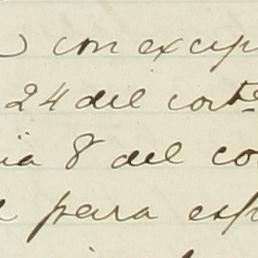 con excep
24 del corte
ia 8 del co
para esp